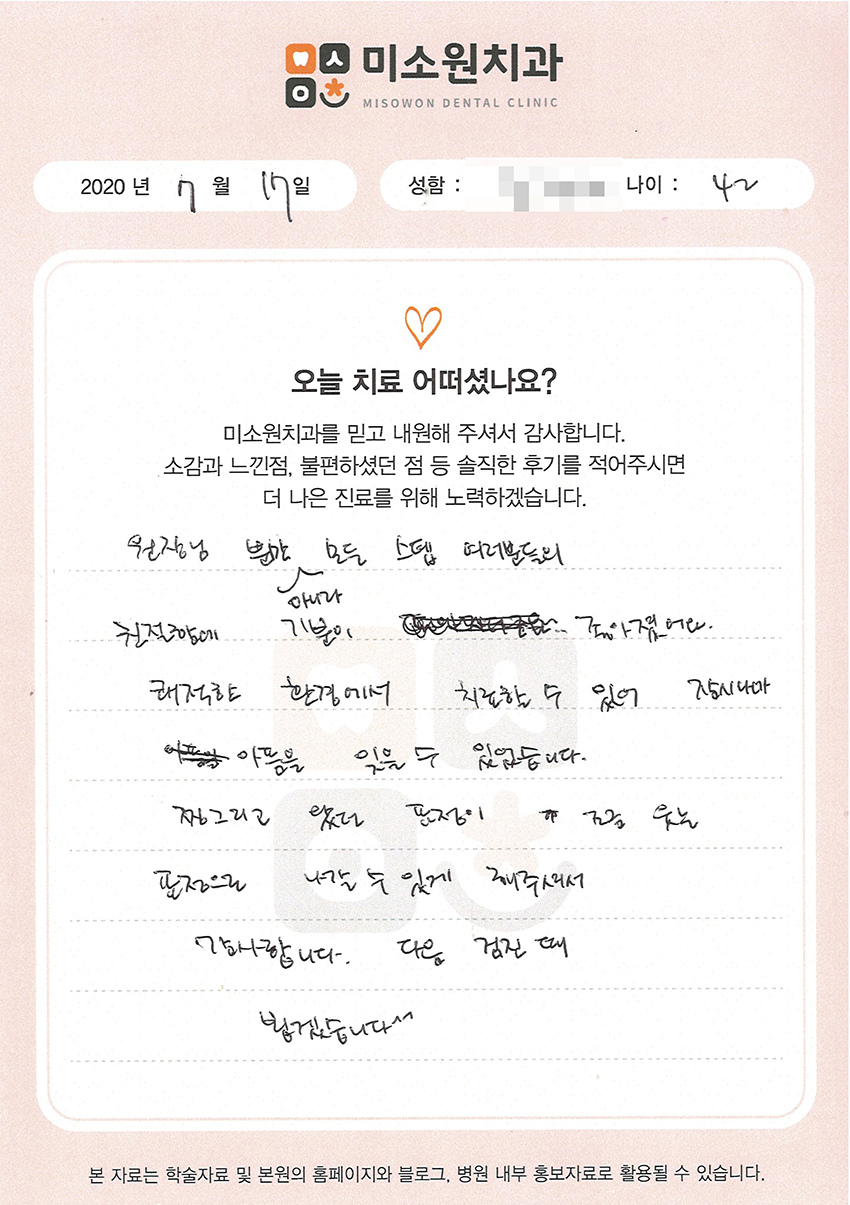 미소원치과
MISOWON DENTAL CLINIC
2020 년 7 월 17일 성함 : 나이 : 42
오늘 치료 어떠셨나요?
미소원치과를 믿고 내원해 주셔서 감사합니다.
소감과 느낀점, 불편하셨던 점 등 솔직한 후기를 적어주시면
더 나은 진료를 위해 노력하겠습니다.
원장님 뿐만 모든 스텝 여러분들의
아니라
친절함에 기분이 좋아졌어요.
쾌적한 환경에서 치료할 수 있어 잠시나마
아픔을 잊을 수 있었습니다.
찡그리고 왔던 표정이 지금 웃는
표정으로 나갈 수 있게 해주셔서
감사합니다. 다음 검진 때
뵙겠습니다^^
본 자료는 학술자료 및 본원의 홈페이지와 블로그, 병원 내부 홍보자료로 활용될 수 있습니다.